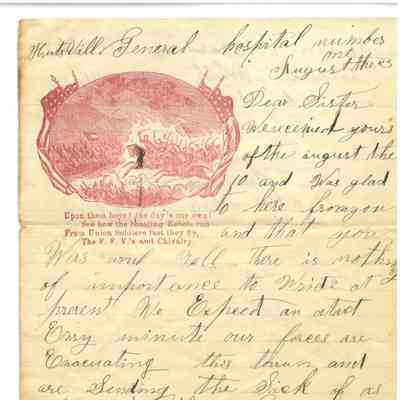 HutsVill General hospital number one
August the 23
Dear Sister
We received yours
of the august the
and Was glad
to here from you
and that you
Upon them boys! the day's my own!
See how the boasting Rebels run
From Union Soldiers fast they fly,
The F. F. V.'s and Chivalry.
Was well there is nothing
of importance to Wride at
present We Expect an atact
Evry minute our forces are
Evacuating this town and
are Sending the Sick of as